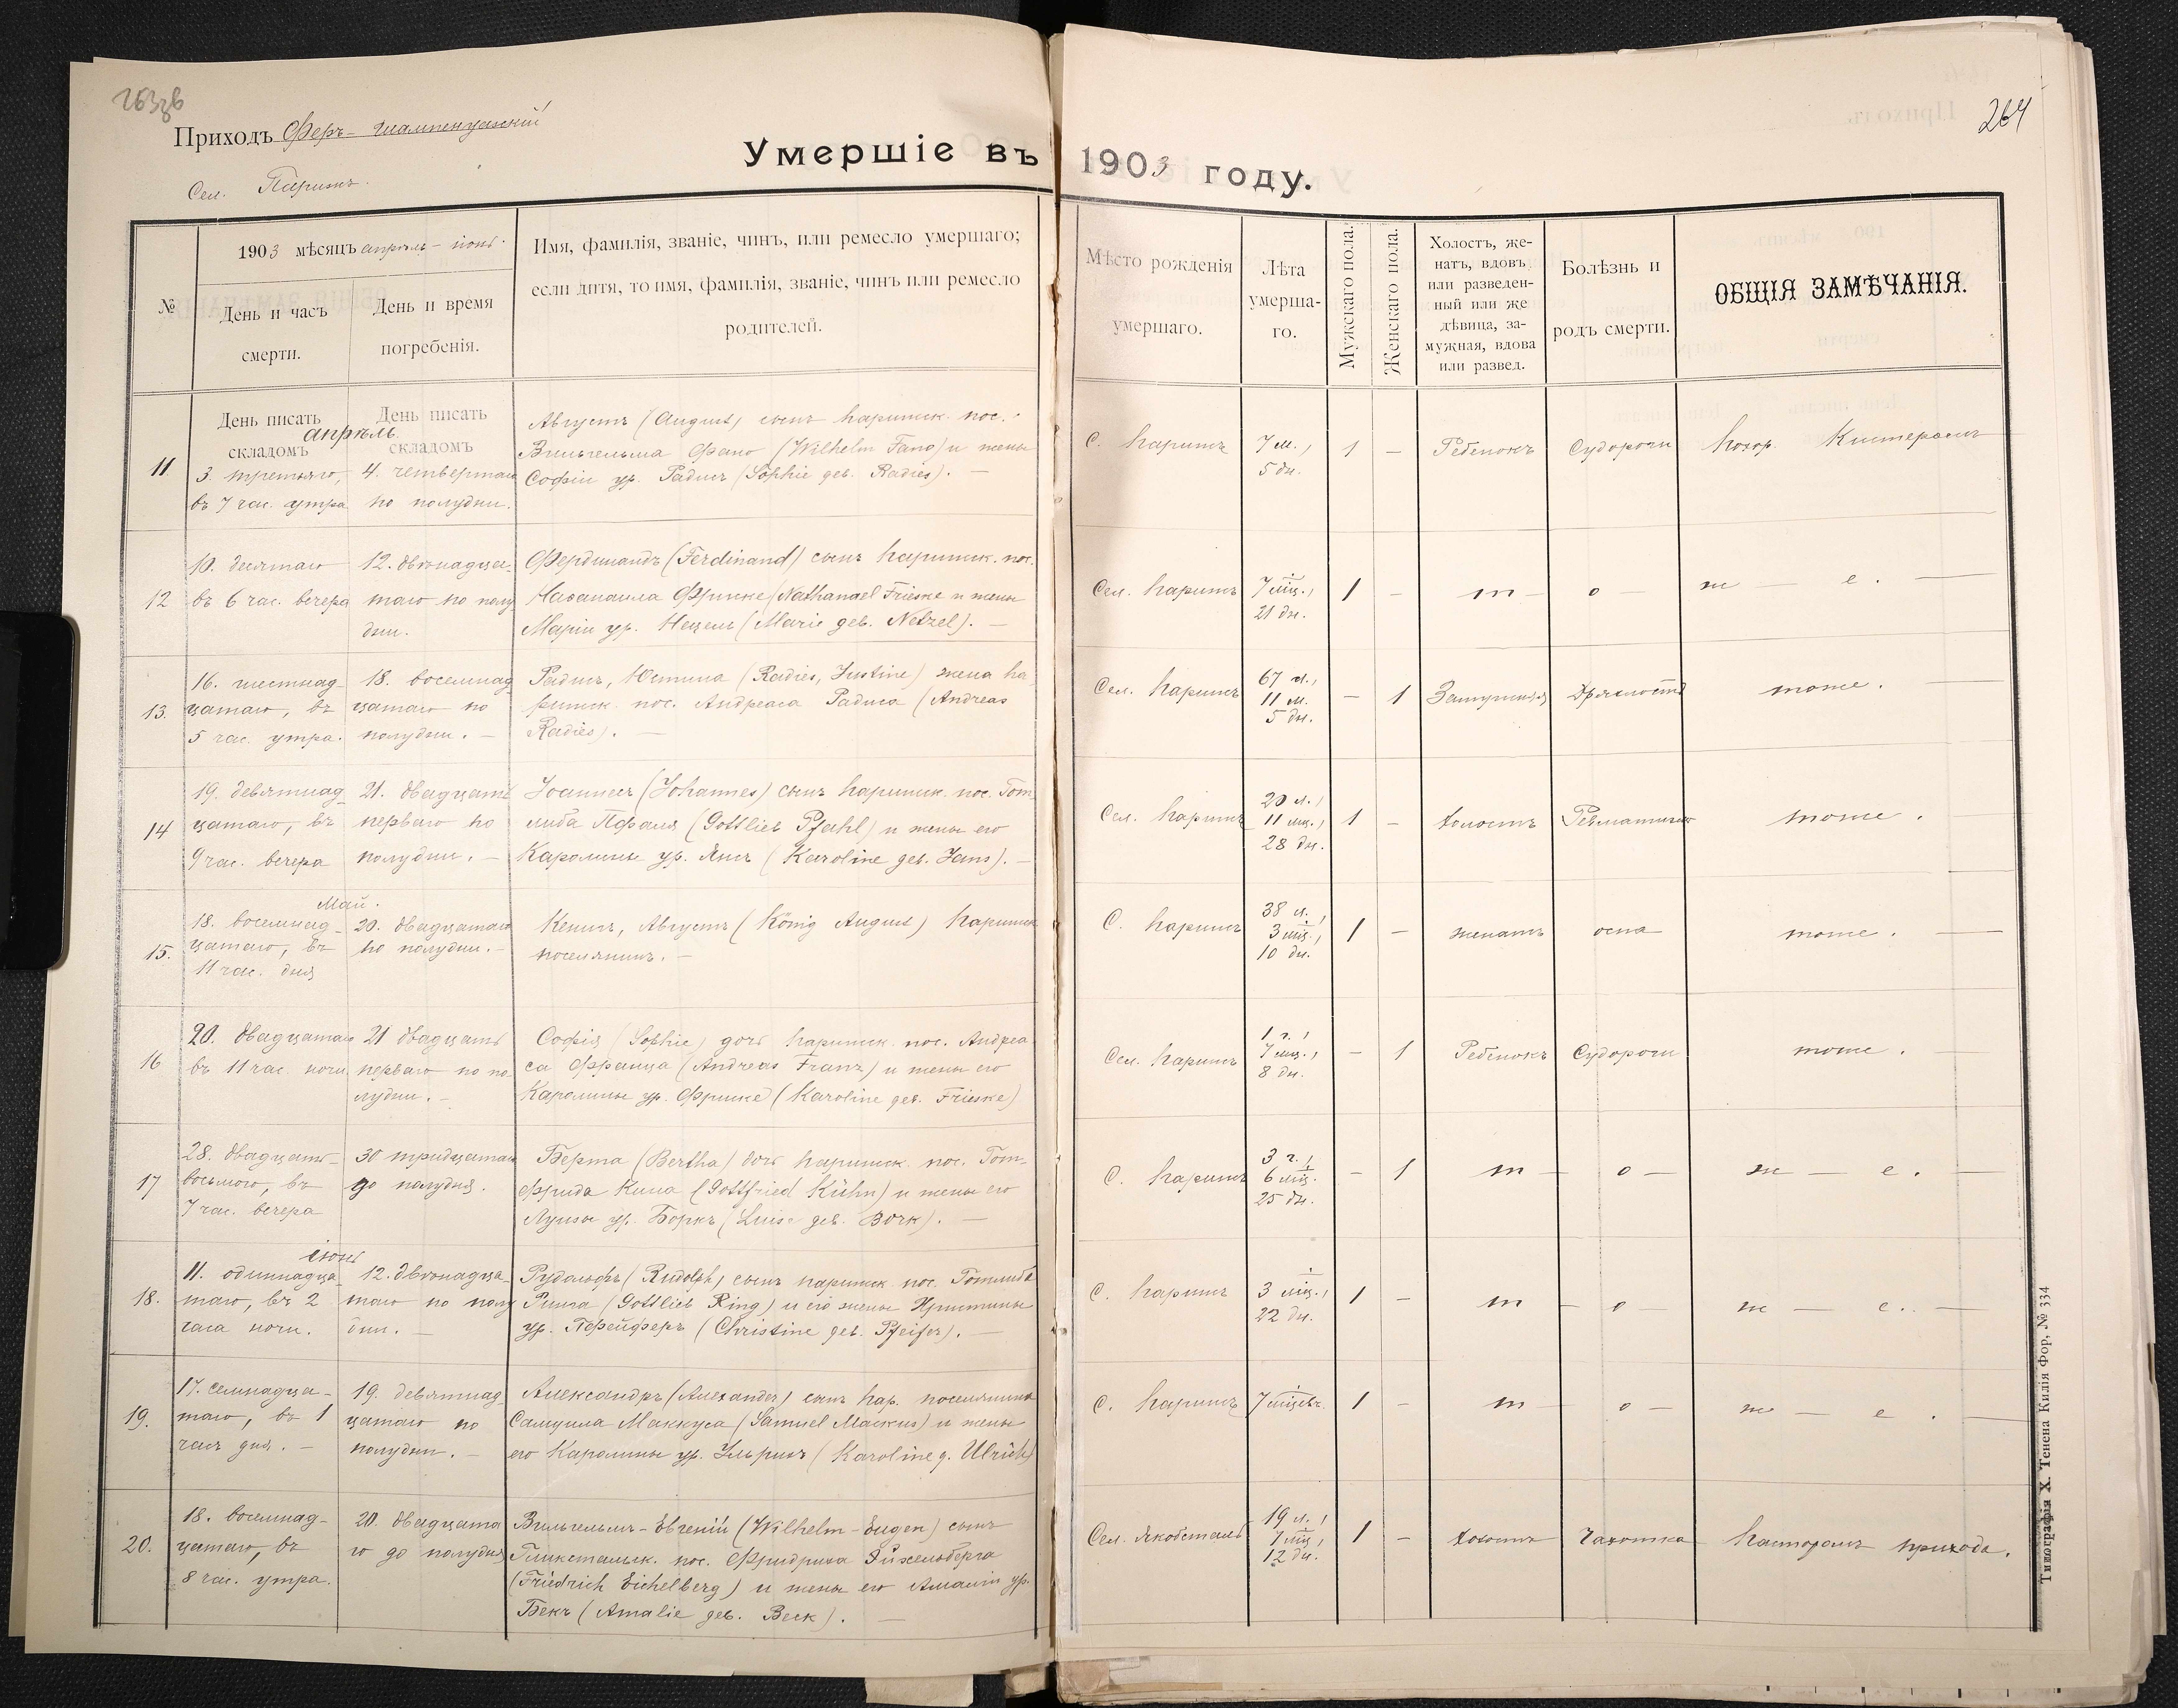 263 об
264
Приходъ Феръ-Шампенуазскій
Сел. Парижъ.
Умершіе въ 1903 году.
№
1903 мѣсяцъ апрѣль – іюнь.
День и часъ смерти.
День и время погребенія.
Имя, фамилія, званіе, чинъ, или ремесло умершаго;
если дитя, то имя, фамилія, званіе, чинъ или ремесло
родителей.
Мѣсто рожденія
умершаго.
Лѣта
умерша-
го.
Мужскаго пола.
Женскаго пола.
Холостъ, же-
натъ, вдовъ
или разведен-
ный или же
дѣвица, за-
мужная, вдова
или развед.
Болѣзнь и
родъ смерти.
ОБЩІЯ ЗАМѢЧАНІЯ.
День писать складомъ
День писать складомъ
апрѣль.
11
3. третьяго,
въ 7 час. утра
4. четвертаго
по полудни.
Августъ (August) сынъ парижск. пос.
Вильгельма Фано (Wilhelm Fano) и жены
Софіи ур. Радисъ (Sophie geb. Radies). —
С. Парижъ
7 м.,
5 дн.
1
–
Ребенокъ
Судороги
Похор. Кистеромъ
12
10. десятаго
въ 6 час. вечера
12. двѣнадца-
таго по полу-
дни.
Фердинандъ (Ferdinand) сынъ парижск. пос.
Наѳанаила Фриске (Nathanael Frieske и жены
Маріи ур. Нецель (Marie geb. Netzel). —
Сел. Парижъ
7 мц.,
21 дн.
1
–
т – о – ж – е. –
13.
16. шестнад-
цатаго, въ
5 час. утра.
18. восемнад-
цатаго по
полудни. –
Радисъ, Юстина (Radies, Justine) жена па-
рижск. пос. Андреаса Радиса (Andreas
Radies). —
Сел. Парижъ
67 л.,
11 м.
5 дн.
–
1
Замужняя
Дряхлость
тоже. –
14
19. девятнад-
цатаго, въ
9 час. вечера
21. двадцать
перваго по
полудни. –
Іоаннесъ (Johannes) сынъ парижск. пос. Гот-
либа Пфаля (Gottlieb Pfahl) и жены его
Каролины ур. Янсъ (Karoline geb. Jans). –
Сел. Парижъ
20 л.,
11 мц.,
28 дн.
1
–
холостъ
Ревматизмъ
тоже.
Май.
15.
18. восемнад-
цатаго, въ
11 час. дня
20. двадцатаго
по полудни. –
Кенигъ, Августъ (König August) парижск.
поселянинъ. –
С. Парижъ
38 л.,
3 мц.,
10 дн.
1
–
женатъ
оспа
тоже. –
16
20. двадцатаго
въ 11 час. ночи
21 двадцать
перваго по по-
лудни. –
Софія (Sophie) дочь парижск. пос. Андреа-
са Франца (Andreas Franz) и жены его
Каролины ур. Фриске (Karoline geb. Frieske)
Сел. Парижъ
1 г.,
7 мц.,
8 дн.
–
1
Ребенокъ
Судороги
тоже.
17
28. двадцать-
восьмого, въ
7 час. вечера
30 тридцатаго
до полудня.
Берта (Bertha) дочь парижск. пос. Гот-
фрида Кина (Gottfried Kühn) и жены его
Луизы ур. Боркъ (Luise geb. Bork). —
С. Парижъ
3 г.,
6 мц.
25 дн.
–
1
т – о – ж – е. –
іюнь
18.
11. одиннадца-
таго, въ 2
часа ночи.
12. двѣнадца-
таго по полу-
дни. –
Рудольфъ (Rudolph) сынъ парижск. пос. Готлиба
Ринга (Gottlieb Ring) и его жены Христины
ур. Пфейферъ (Christine geb. Pfeifer). —
С. Парижъ
3 мц.,
22 дн.
1
–
т – о – ж – е. –
19.
17. семнадца-
таго, въ 1
часъ дня. –
19. девятнад-
цатаго по
полудни. –
Александръ (Alexander) сынъ пар. поселянина
Самуила Маккуса (Samuel Mackus) и жены
его Каролины ур. Ульрихъ (Karoline g. Ulrich)
С. Парижъ
7 мцевъ.
1
–
т – о – ж – е. –
20.
18. восемнад-
цатаго, въ
8 час. утра.
20. двадцата-
го до полудня
Вильгельмъ-Евгеній (Wilhelm-Eugen) сынъ
Гликстальск. пос. Фридриха Эйхельберга
(Friedrich Eichelberg) и жены его Амаліи ур.
Бекъ (Amalie geb. Beck). —
Сел. Якобсталь
19 л.,
7 мц.,
12 дн.
1
–
холостъ
Чахотка
Пасторомъ прихода.
Типографія Х. Тенена Килія Фор, № 334